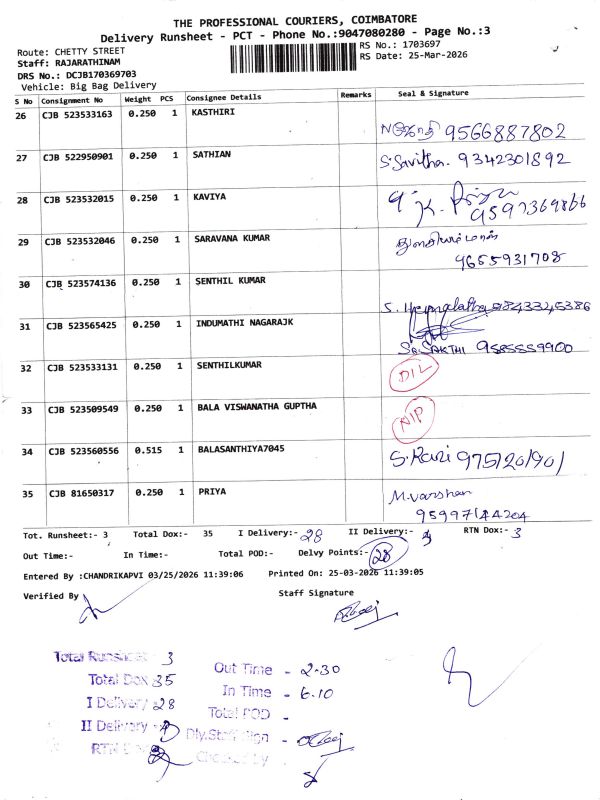 THE PROFESSIONAL COURIERS, COIMBATORE
Delivery Runsheet - PCT - Phone No.:9047080280 - Page No.:3
Route: CHETTY STREET
RS No.: 1703697
Staff: RAJARATHINAM
RS Date: 25-Mar-2026
DRS No.: DCJB170369703
Vehicle: Big Bag Delivery
S No Consignment No Weight PCS Consignee Details Remarks Seal & Signature
26 CJB 523533163 0.250 1 KASTHIRI
9566887802
27 CJB 522950901 0.250 1 SATHIAN S. Savitha. 9342301892
28 CJB 523532015 0.250 1 KAVIYA
9597369866
29 CJB 523532046 0.250 1 SARAVANA KUMAR
9655931708
30 CJB 523574136 0.250 1 SENTHIL KUMAR
31 CJB 523565425 0.250 1 INDUMATHI NAGARAJK
SAKTHI 9585559900
32 CJB 523533131 0.250 1 SENTHILKUMAR DIL
33 CJB 523509549 0.250 1 BALA VISWANATHA GUPTHA NIP
34 CJB 523560556 0.515 1 BALASANTHIYA7045 S. Rani 9751201901
35 CJB 81650317 0.250 1 PRIYA M. varshan
95997144204
Tot. Runsheet:- 3 Total Dox:- 35 I Delivery:- 28 II Delivery:- RTN Dox:- 3
Out Time:- In Time:- Total POD:- Delvy Points:- 28
Entered By :CHANDRIKAPVI 03/25/2026 11:39:06 Printed On: 25-03-2026 11:39:05
Verified By Staff Signature
Total Runsheet 3
Out Time - 2-30
Total Dox 35
In Time - 6.10
I Delivery 28
Total POD -
II Delivery
Dly.Staff Sign -
RTN
Checked by